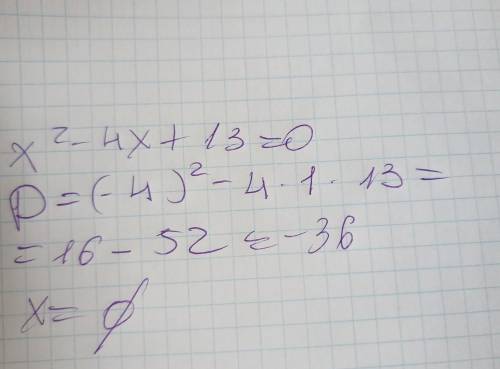 x² - 4x + 13 = 0
D = (-4)² - 4 · 1 · 13 =
= 16 - 52 = -36
x = ∅